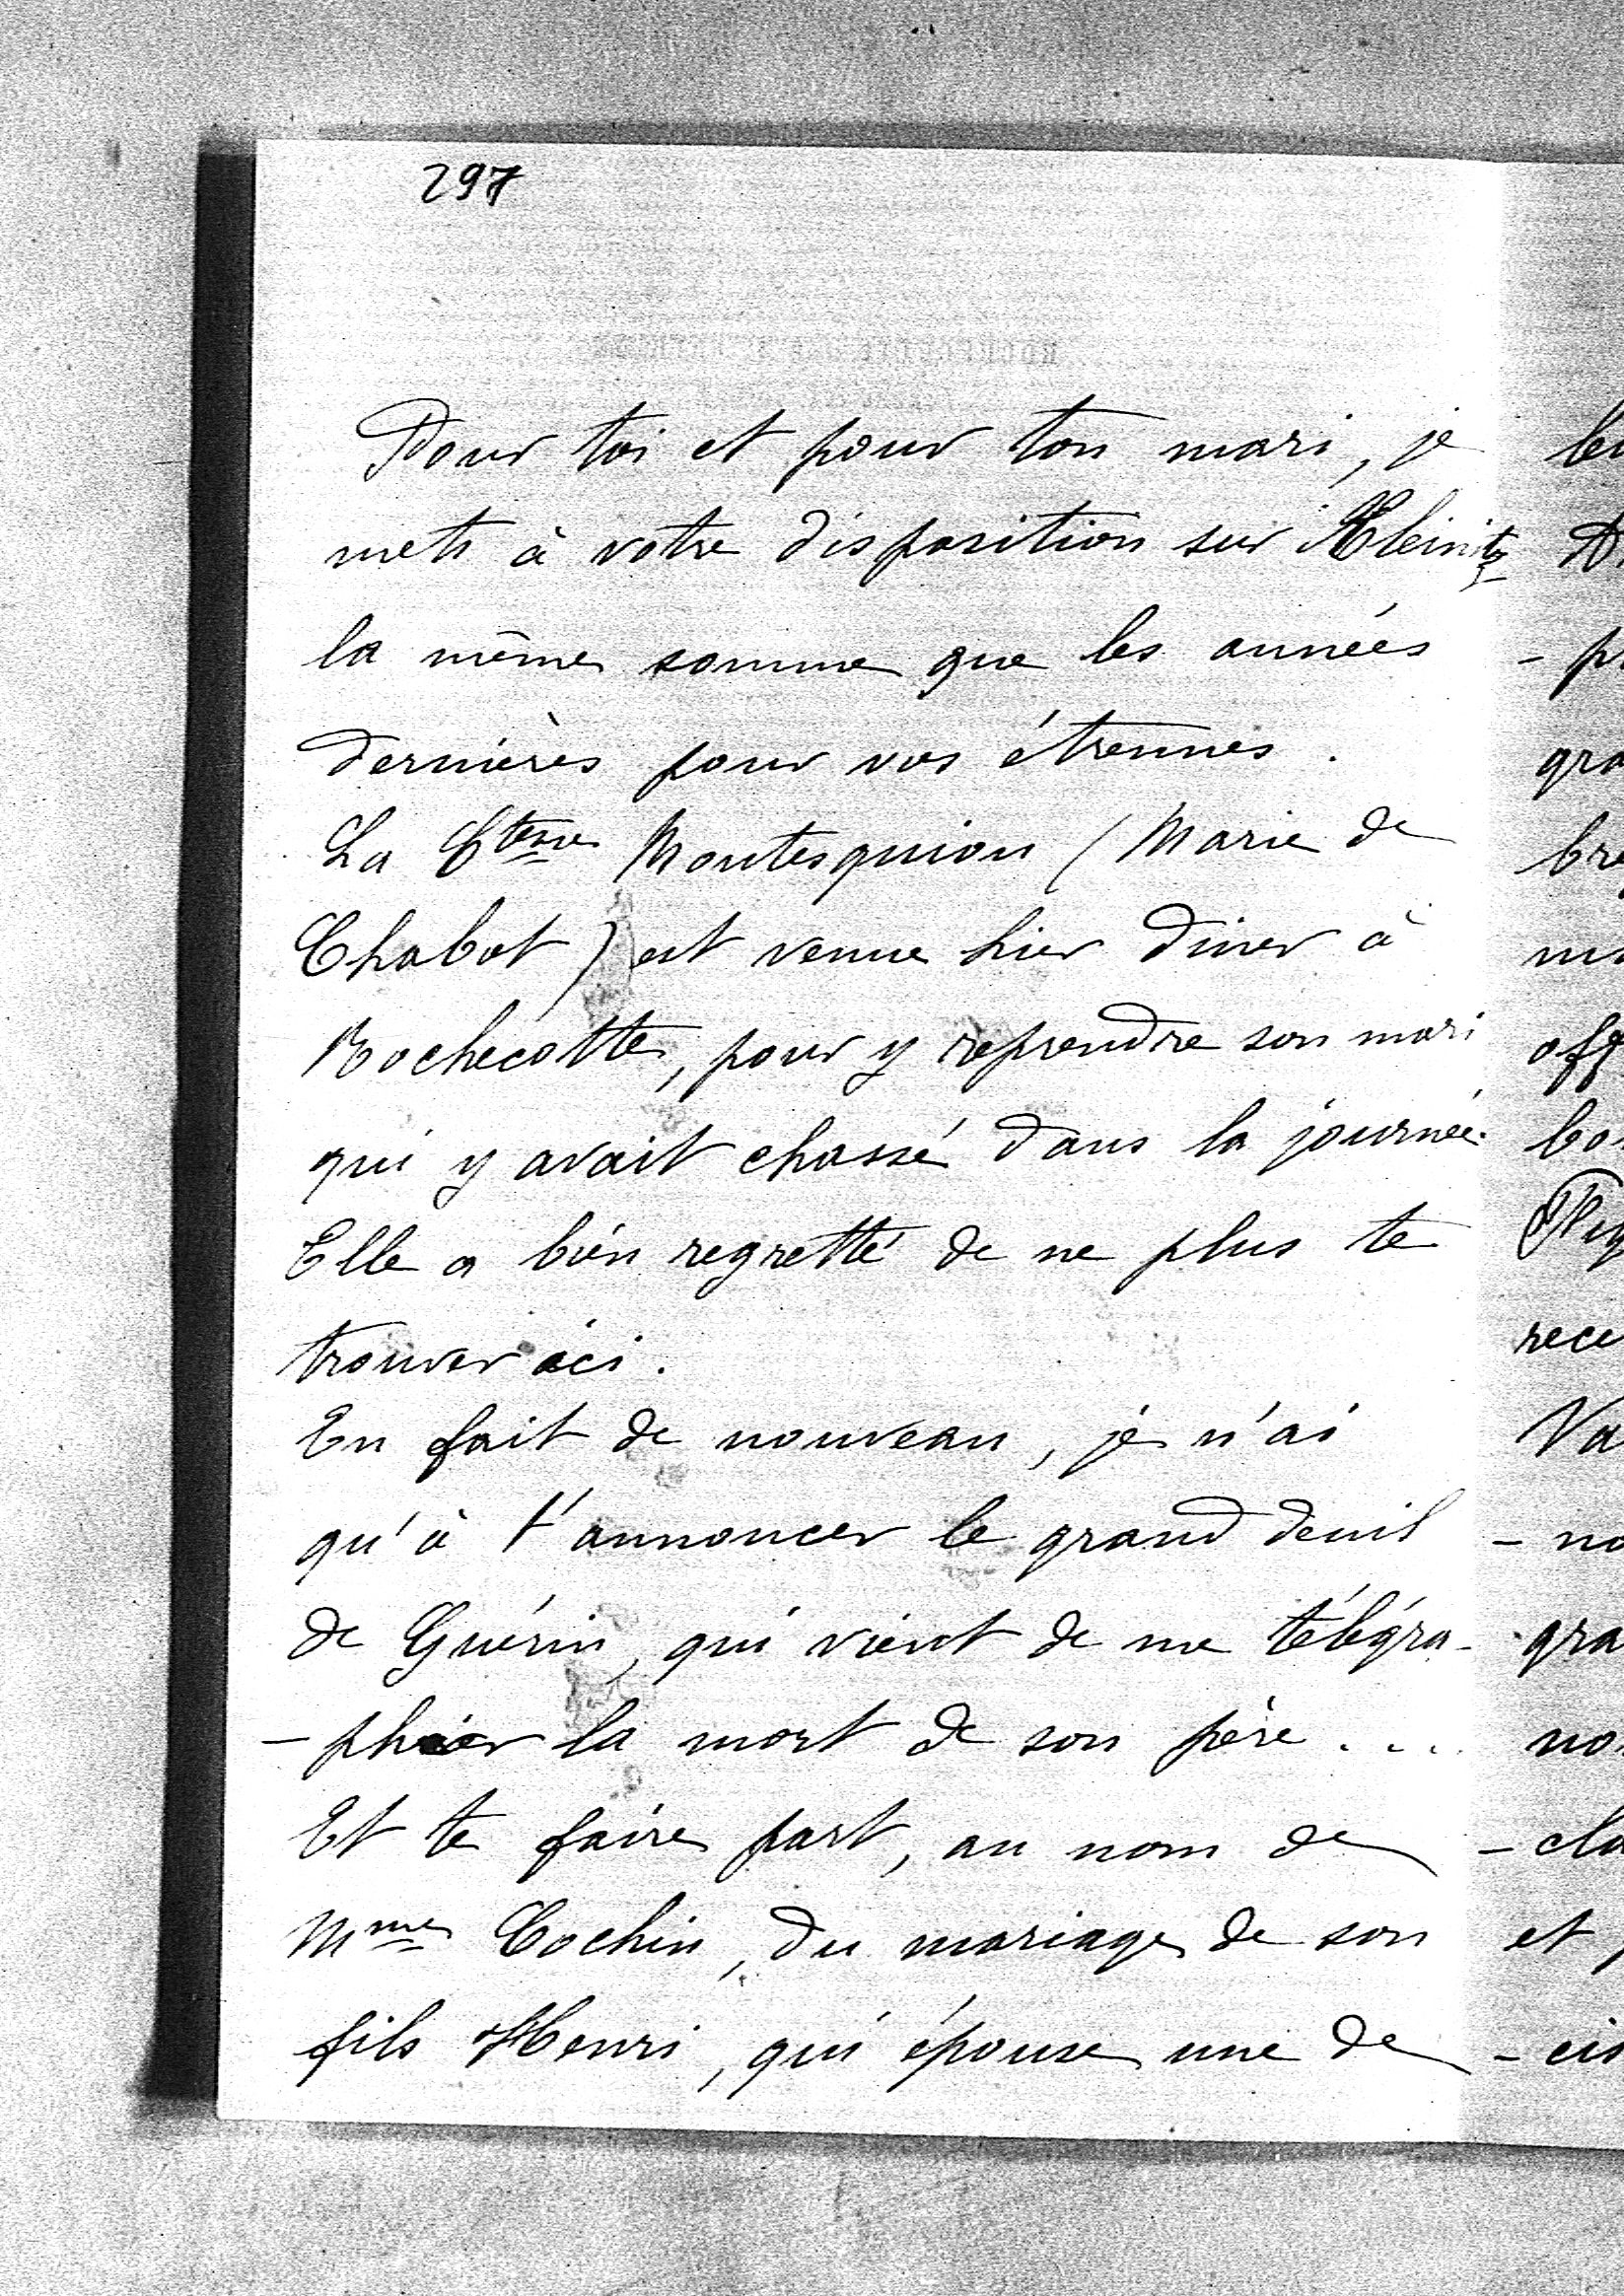 297
Pour toi et pour ton mari, je
mets à votre disposition sur Kleinitz
la même somme que les années
dernières pour vos étrennes.
La Ctesse Montesquiou (Marie de
Chabot) est venue hier diner à
Rochecotte, pour y reprendre son mari
qui y avait chassé dans la journée.
Elle a bien regretté de ne plus te
trouver ici.
En fait de nouveau, je n'ai
qu'à t'annoncer le grand deuil
de Guérin, qui vient de me télégra-
-phier la mort de son père...
Et te faire part, au nom de
Mme Cochin, du mariage de son
fils Henri, qui épouse une de